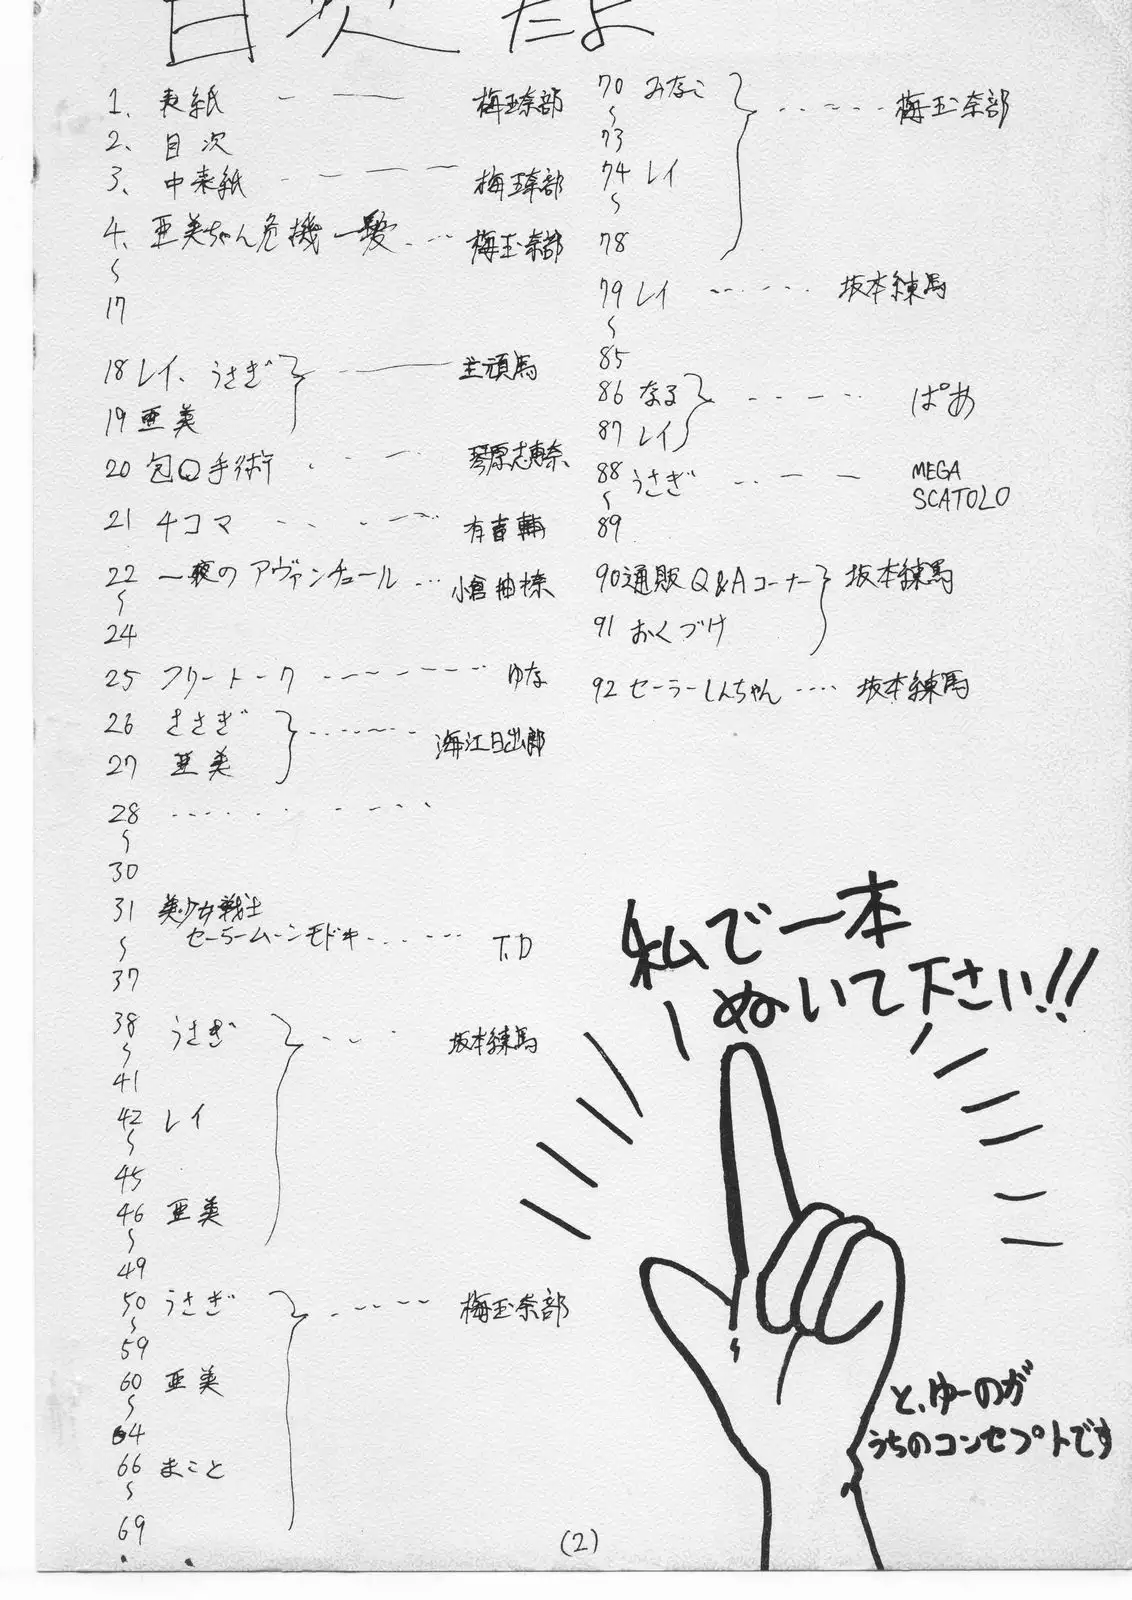 目次だよ
1、表紙 - — 梅玉奈部
2、目次
3、中表紙 - - — - - - 梅玉奈部
4、亜美ちゃん危機一髪 ・-・・ 梅玉奈部
〜
17
18 レイ、うさぎ - - —— 主頑馬
19 亜美
20 包Q手術 ・ - - ・・ 琴原志恵奈
21 4コマ - - ・・- - 有音輔
22 一夜のアヴァンチュール ・・・ 小倉柚奈
〜
24
25 フリートーク - - - - - - - - ゆな
26 ささぎ - ・・・- - - 海江日出郎
27 亜美
28 ・・・・・・ - - - -
〜
30
31 美少女戦士
セーラームーンモドキ・・・・・・ T.D
〜
37
38 うさぎ ・・- - 坂本練馬
〜
41
42 レイ
〜
45
46 亜美
〜
49
50 うさぎ ・・- - - - 梅玉奈部
〜
59
60 亜美
〜
64
66 まこと
〜
69
70 みなこ ・・・・・- - - 梅玉奈部
〜
73
74 レイ
〜
78
79 レイ - ・・- ・- ・・ 坂本練馬
〜
85
86 なる - ・・- - - ぱあ
87 レイ
88 うさぎ ・・ - - MEGA
SCATOLO
〜
89
90 通販Q&Aコーナー 坂本練馬
91 おくづけ
92 セーラーしんちゃん ・・・・ 坂本練馬
私で一本
ぬいて下さい!!
と、ゆーのが
うちのコンセプトです
(2)